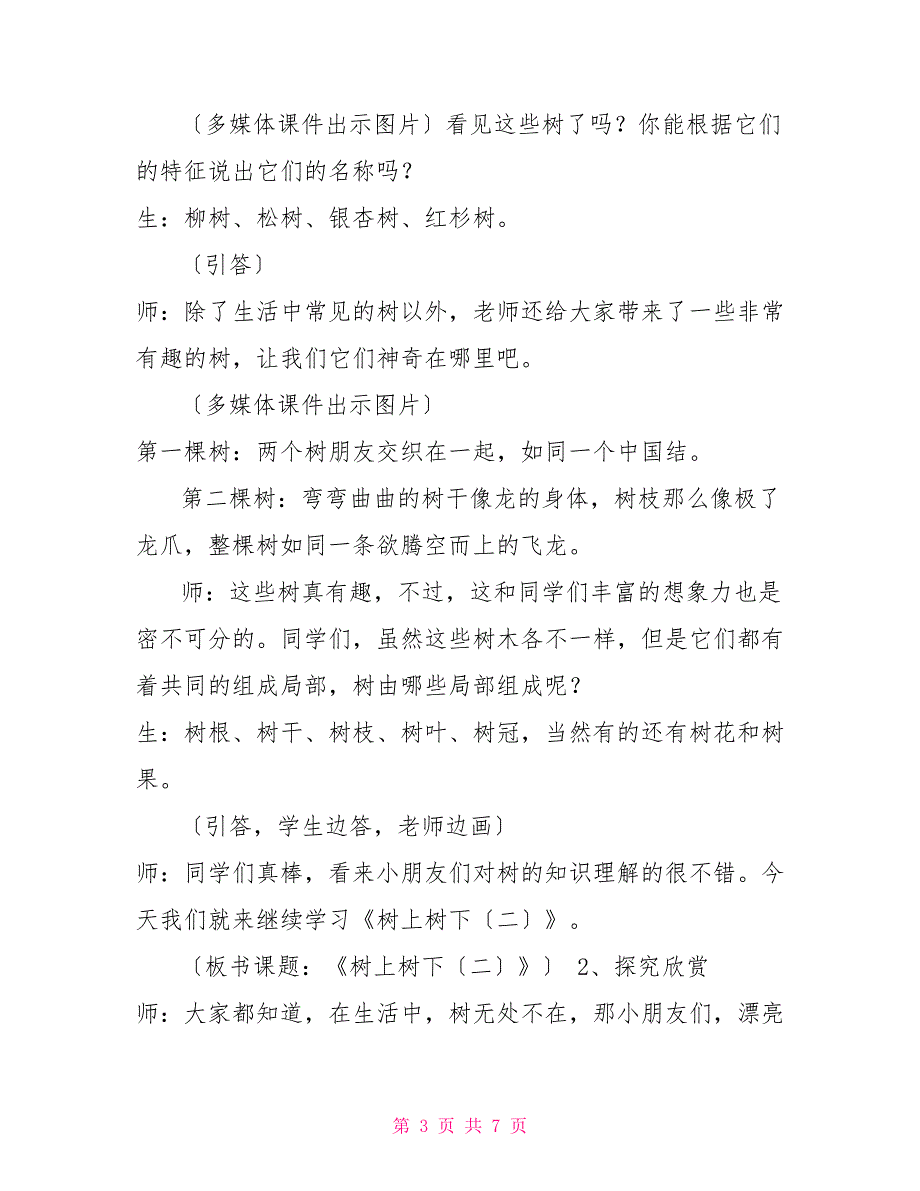 〔多媒体课件出示图片〕看见这些树了吗？你能根据它们
的特征说出它们的名称吗？
生：柳树、松树、银杏树、红杉树。
〔引答〕
师：除了生活中常见的树以外，老师还给大家带来了一些非常
有趣的树，让我们它们神奇在哪里吧。
〔多媒体课件出示图片〕
第一棵树：两个树朋友交织在一起，如同一个中国结。
第二棵树：弯弯曲曲的树干像龙的身体，树枝那么像极了
龙爪，整棵树如同一条欲腾空而上的飞龙。
师：这些树真有趣，不过，这和同学们丰富的想象力也是
密不可分的。同学们，虽然这些树木各不一样，但是它们都有
着共同的组成局部，树由哪些局部组成呢？
生：树根、树干、树枝、树叶、树冠，当然有的还有树花和树
果。
〔引答，学生边答，老师边画〕
师：同学们真棒，看来小朋友们对树的知识理解的很不错。今
天我们就来继续学习《树上树下〔二〕》。
〔板书课题：《树上树下〔二〕》〕 2、探究欣赏
师：大家都知道，在生活中，树无处不在，那小朋友们，漂亮
第 3 页 共 7 页